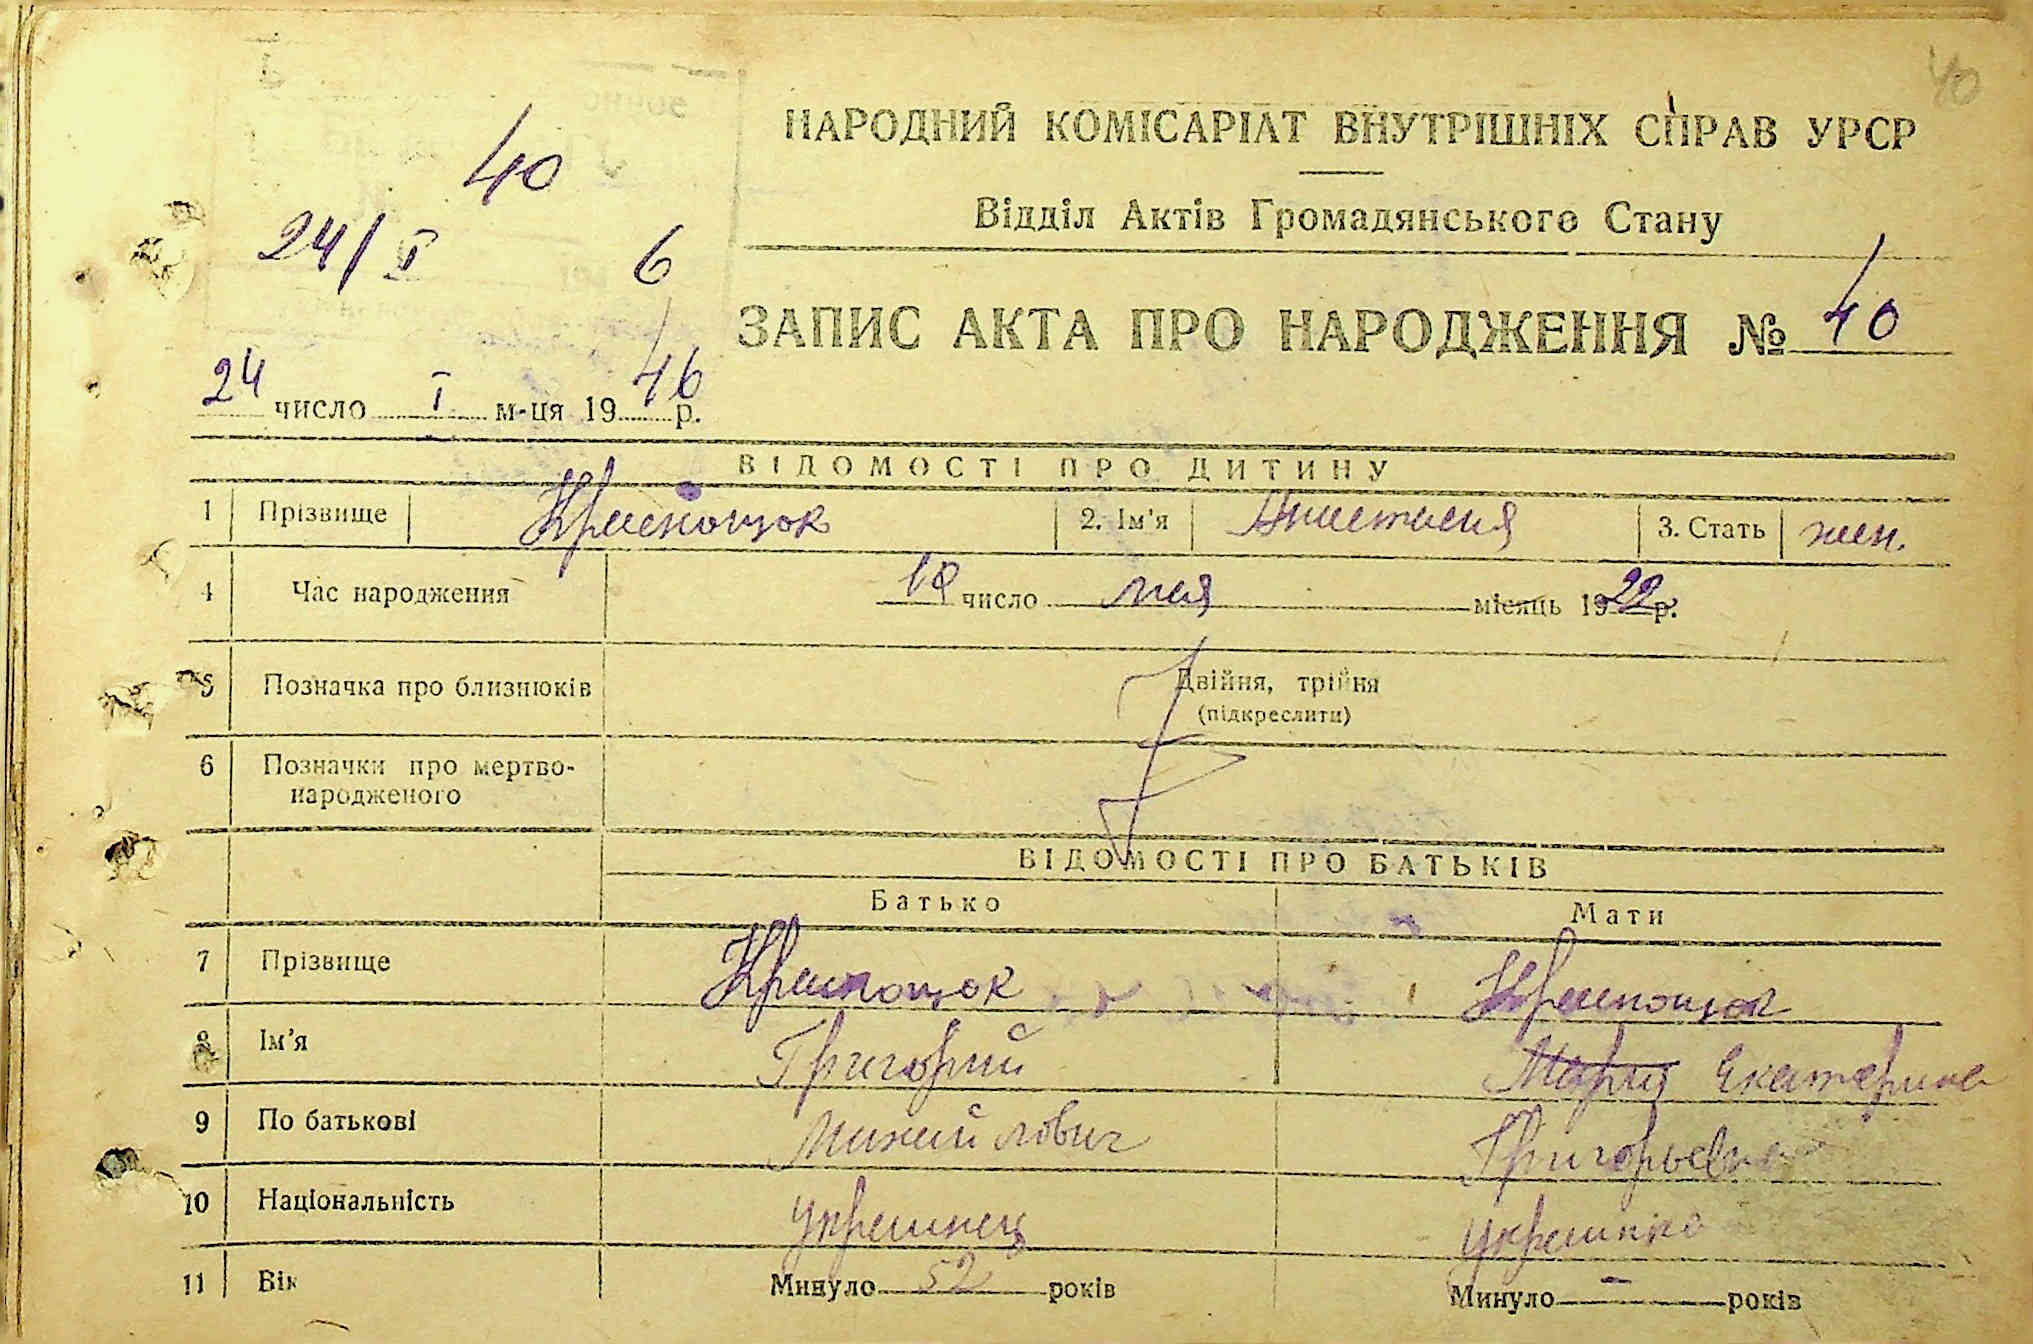 40
40
НАРОДНИЙ КОМІСАРІАТ ВНУТРІШНІХ СПРАВ УРСР
Відділ Актів Громадянського Стану
24/I 6
ЗАПИС АКТА ПРО НАРОДЖЕННЯ № 40
24 число I м-ця 1946 р.
ВІДОМОСТІ ПРО ДИТИНУ
1 Прізвище Краснощок 2. Ім'я Анастасия 3. Стать жен.
4 Час народження число мая місяць 1922 р.
5 Позначка про близнюків Двійня, трійня
(підкреслити)
6 Позначки про мертво-
народженого
ВІДОМОСТІ ПРО БАТЬКІВ
Батько Мати
7 Прізвище Краснощок Краснощок
8 Ім'я Григорий Мария Екатерина
9 По батькові Михайлович Григорьевна
10 Національність украинец украинка
11 Вік Минуло 52 років Минуло – років